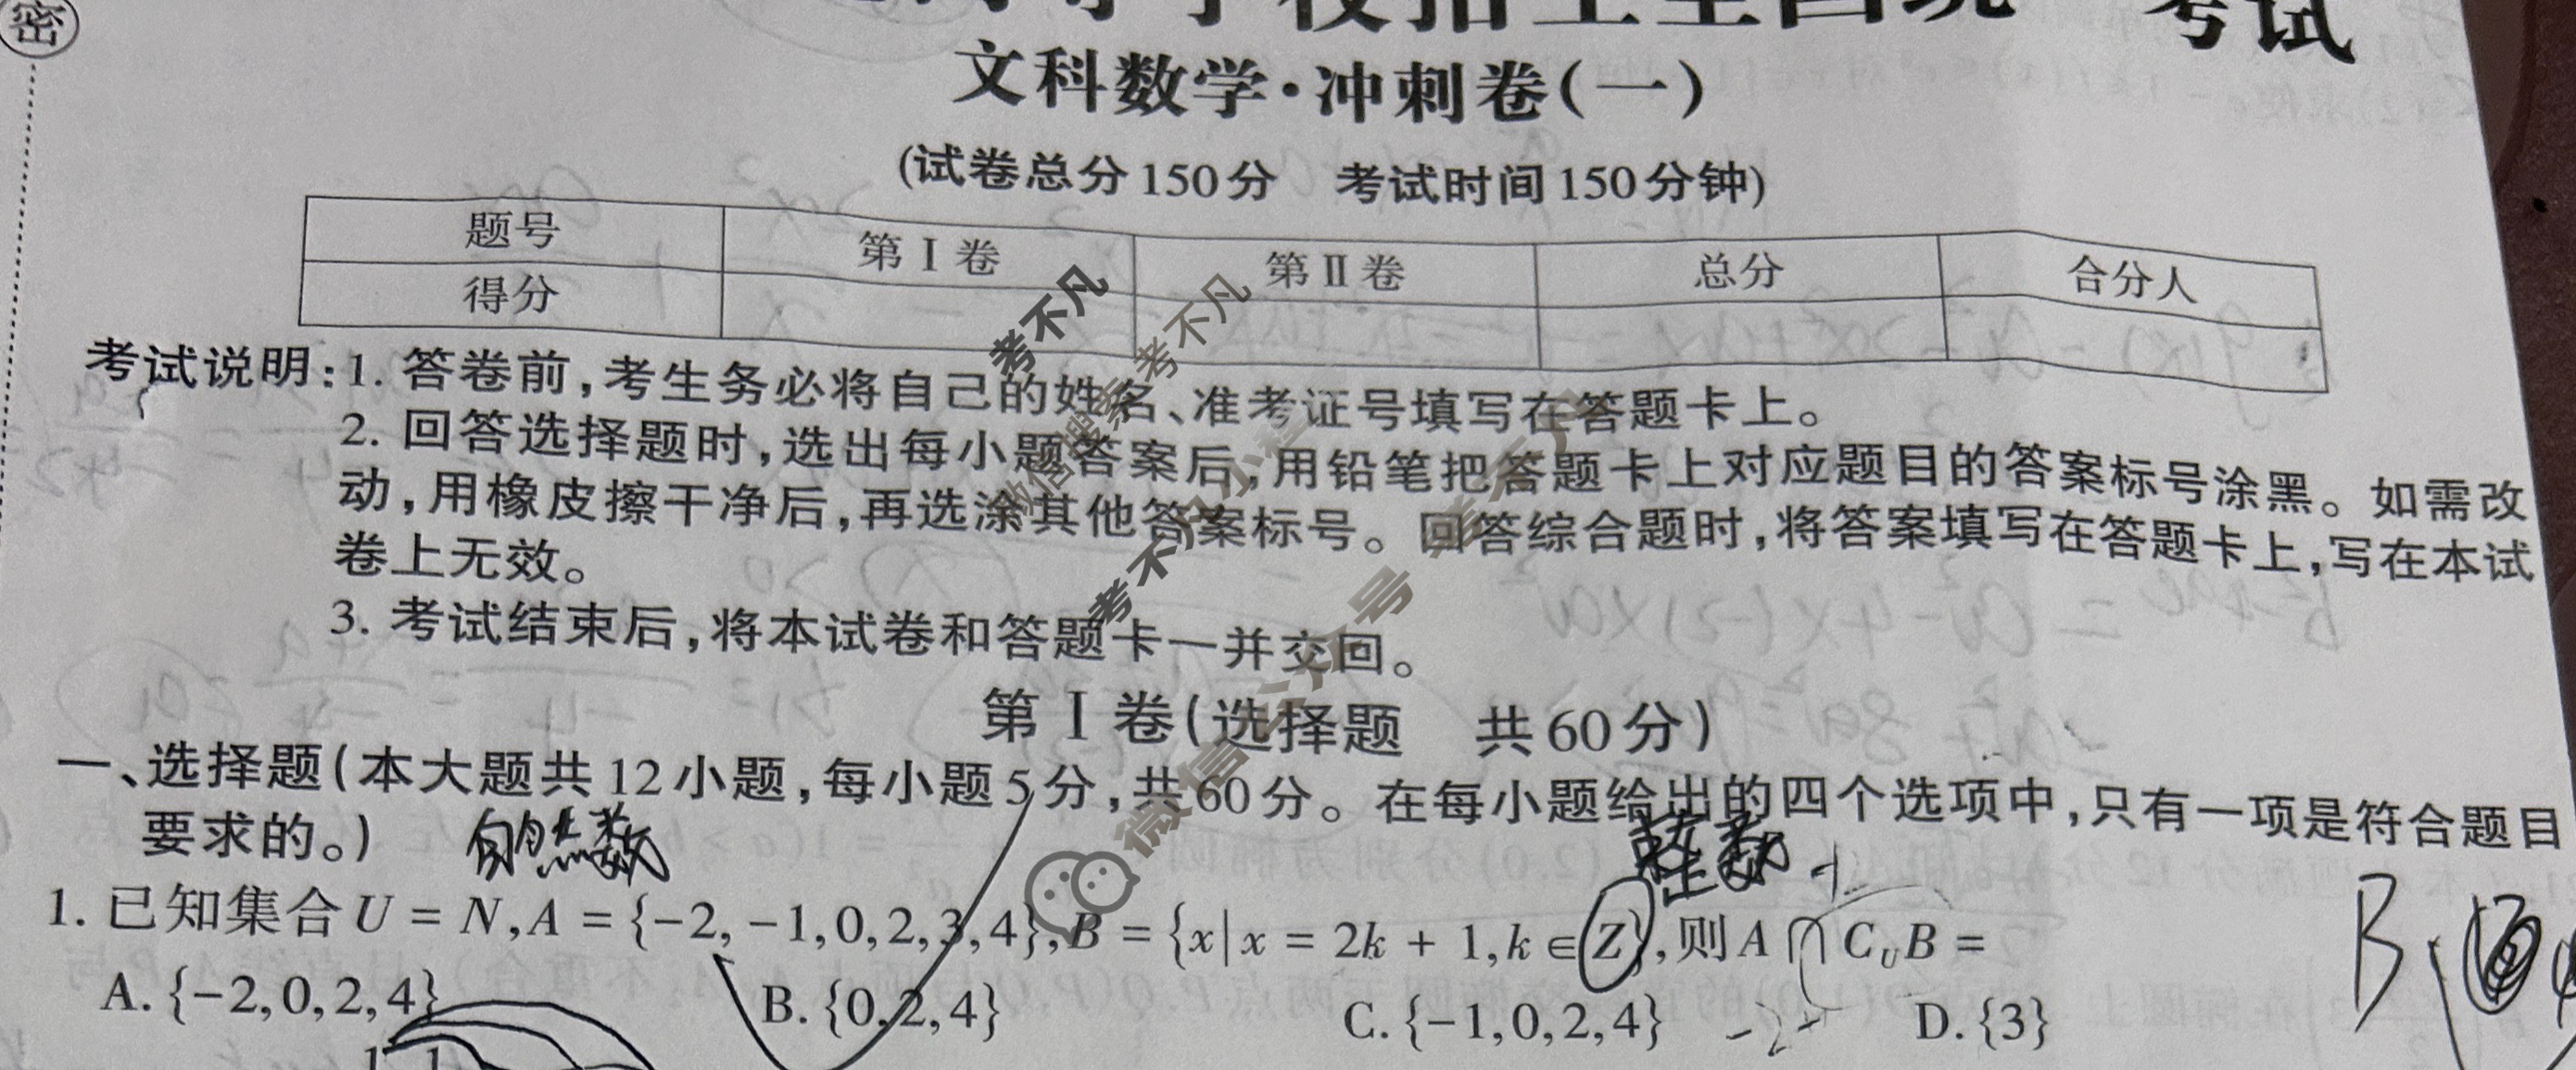 密
考试
文科数学·冲刺卷(一)
(试卷总分150分 考试时间150分钟)
题号 第Ⅰ卷 第Ⅱ卷 总分 合分人
得分
考试说明:1. 答卷前,考生务必将自己的姓名、准考证号填写在答题卡上。
2. 回答选择题时,选出每小题答案后,用铅笔把答题卡上对应题目的答案标号涂黑。如需改
动,用橡皮擦干净后,再选涂其他答案标号。回答综合题时,将答案填写在答题卡上,写在本试
卷上无效。
3. 考试结束后,将本试卷和答题卡一并交回。
第Ⅰ卷(选择题 共60分)
一、选择题(本大题共12小题,每小题5分,共60分。在每小题给出的四个选项中,只有一项是符合题目
要求的。)
自然数
整数
1. 已知集合U = N,A = {-2,-1,0,2,3,4},B = {x|x = 2k + 1,k∈Z},则A∩C_UB =
A. {-2,0,2,4} B. {0,2,4} C. {-1,0,2,4} D. {3}
B
考不凡
考不凡
微信搜索
考不凡小程
微信公众号